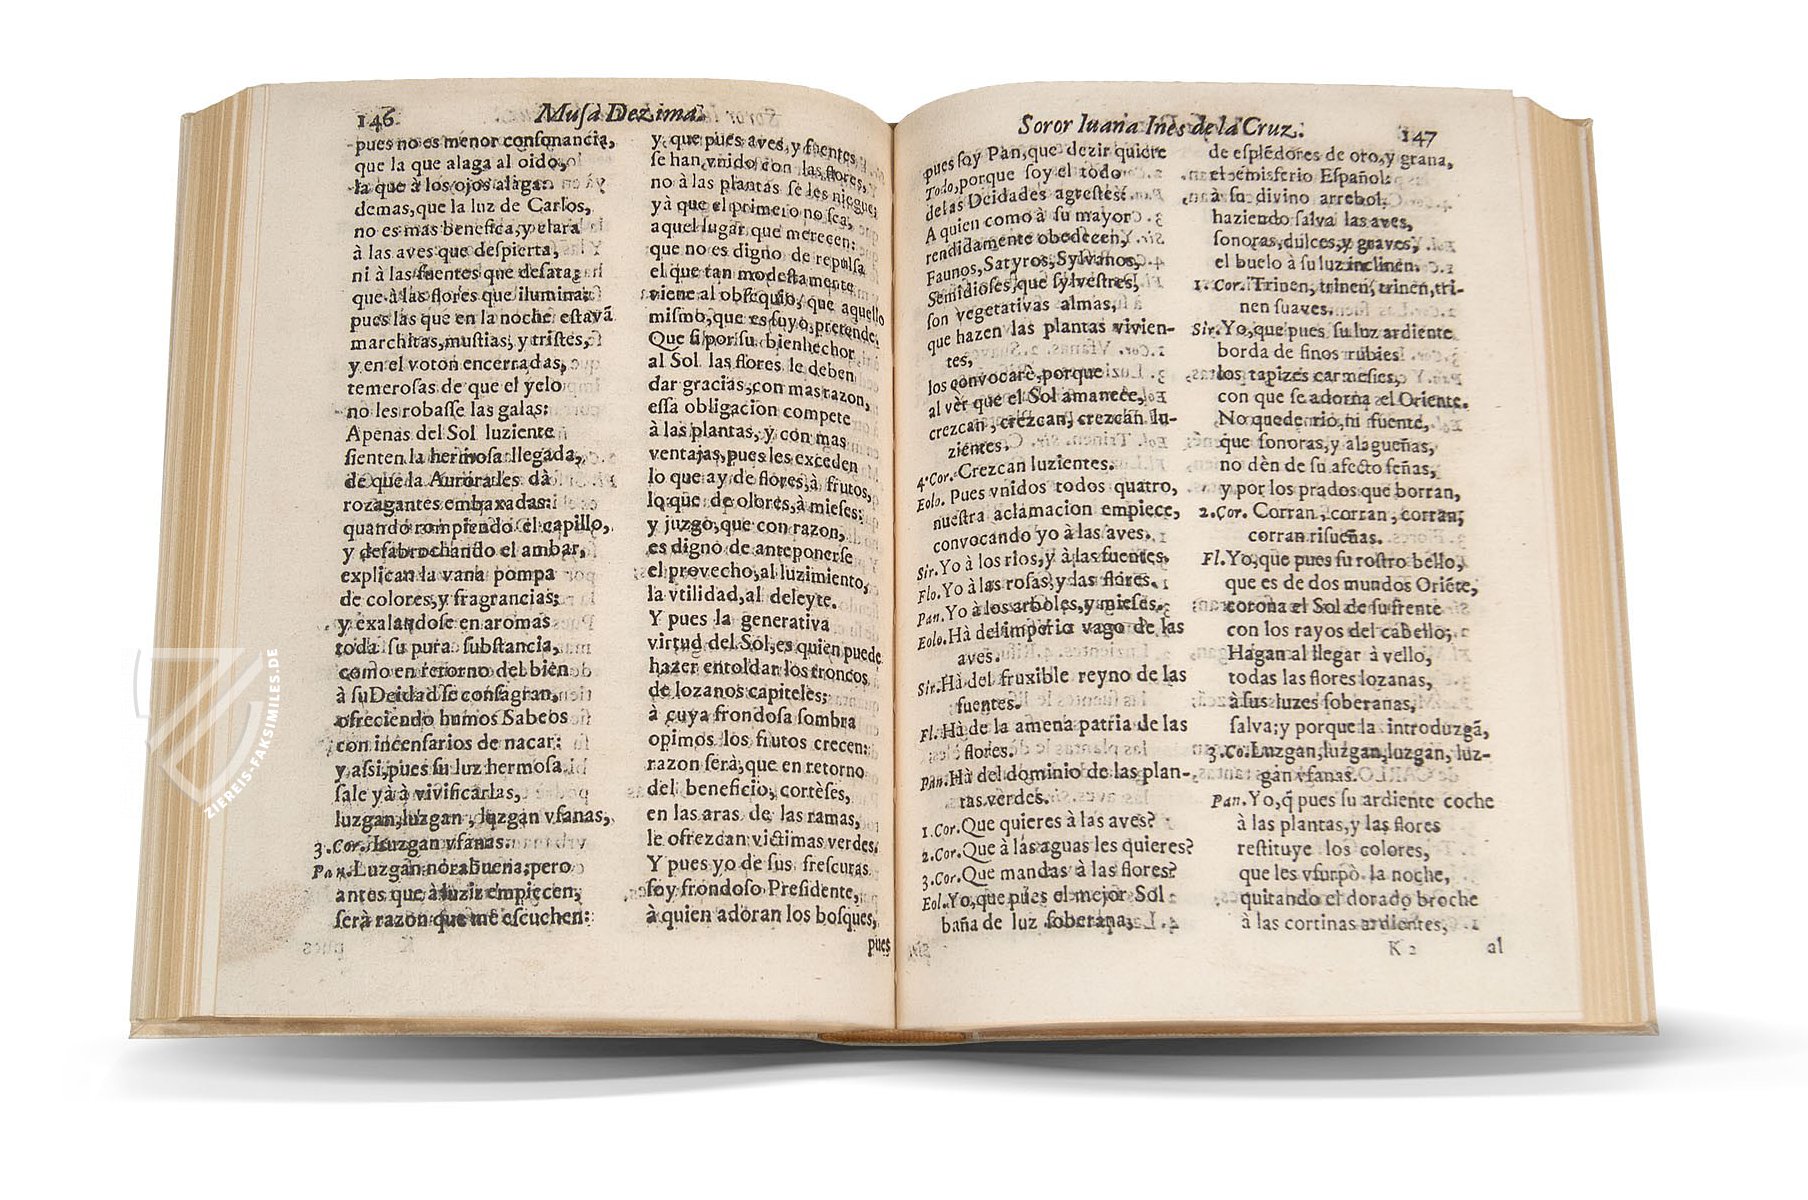 146 Musa Dezima.
pues no es menor consonancia,
que la que alaga al oido,
la que à los ojos alaga:
demas, que la luz de Carlos,
no es mas benefica, y clara
à las aves que despierta,
ni à las fuentes que desata,
que à las flores que ilumina;
pues las que en la noche estavã
marchitas, mustias, y tristes,
y en el voton encerradas,
temerosas de que el yelo
no les robasse las galas:
Apenas del Sol luziente
sienten la hermosa llegada,
de que la Aurora les dà
rozagantes embaxadas:
quando rompiendo el capillo,
y desabrochando el ambar,
explican la vana pompa
de colores, y fragrancias;
y exalandose en aromas
toda su pura substancia,
como en retorno del bien
à su Deidad se consagran,
ofreciendo humos Sabeos
con incensarios de nacar:
y assi, pues su luz hermosa
sale yà à vivificarlas,
luzgan, luzgan, luzgan vfanas,
3. Cor. Luzgan vfanas.
Pan. Luzgan norabuena; pero
antes que à luzir empiecen,
serà razon que me escuchen:
y que pues aves, y fuentes
se han vnido con las flores,
no à las plantas se les niegue;
yà que el primero no sea,
aquel lugar que merecen:
que no es digno de repulsa
el que tan modestamente
viene al obsequio, que aquello
mismo, que es suyo, pretende.
Que si por su bienhechor
al Sol las flores le deben
dar gracias, con mas razon,
essa obligacion compete
à las plantas, y con mas
ventajas, pues les exceden
lo que ay de flores, à frutos,
lo que de olores, à mieses:
y juzgo, que con razon,
es digno de anteponerse
el provecho, al luzimiento,
la vtilidad, al deleyte.
Y pues la generativa
virtud del Sol, es quien puede
hazer entoldar los troncos
de lozanos capiteles;
à cuya frondosa sombra
opimos los frutos crecen:
razon serà, que en retorno
del beneficio, cortèses,
en las aras de las ramas,
le ofrezcan victimas verdes.
Y pues yo de sus frescuras
soy frondoso Presidente,
à quien adoran los bosques,
pues
Soror Iuana Ines de la Cruz. 147
pues soy Pan, que dezir quiere
Todo, porque soy el todo
de las Deidades agrestes:
A quien como à su mayor
rendidamente obedecen,
Faunos, Satyros, Sylvanos,
Semidioses, que sylvestres,
son vegetativas almas,
que hazen las plantas vivien-
tes,
los convocarè, porque
al vèr que el Sol amanece,
crezcan, crezcan, crezcan lu-
zientes.
4. Cor. Crezcan luzientes.
Eolo. Pues vnidos todos quatro,
nuestra aclamacion empiece,
convocando yo à las aves.
Sir. Yo à los rios, y à las fuentes.
Flo. Yo à las rosas, y las flores.
Pan. Yo à los arboles, y mieses.
Eolo. Hà del imperio vago de las
aves.
Sir. Hà del fruxible reyno de las
fuentes.
Fl. Hà de la amena patria de las
flores.
Pan. Hà del dominio de las plan-
tas verdes.
1. Cor. Que quieres à las aves?
2. Cor. Que à las aguas les quieres?
3. Cor. Que mandas à las flores?
Eol. Yo, que pues el mejor Sol
baña de luz soberana;
de esplẽdores de oro, y grana,
el emisferio Español:
à su divino arrebol,
haziendo salva las aves,
sonoras, dulces, y graves,
el buelo à su luz inclinen.
1. Cor. Trinen, trinen, trinen, tri-
nen suaves.
Sir. Yo, que pues su luz ardiente
borda de finos rubies
los tapizes carmesies,
con que se adorna el Oriente.
No quede rio, ni fuente,
que sonoras, y alagueñas,
no dèn de su afecto señas,
y por los prados que borran,
2. Cor. Corran, corran, corran,
corran risueñas.
Fl. Yo, que pues su rostro bello,
que es de dos mundos Oriẽte,
corona el Sol de su frente
con los rayos del cabello;
Hagan al llegar à vello,
todas las flores lozanas,
à sus luzes soberanas,
salva; y porque la introduzgã,
3. Co. Luzgan, luzgan, luzgan, luz-
gan vfanas.
Pan. Yo, q̃ pues su ardiente coche
à las plantas, y las flores
restituye los colores,
que les vsurpò la noche,
quitando el dorado broche
à las cortinas ardientes,
K 2 al
ZIEREIS-FAKSIMILES.DE